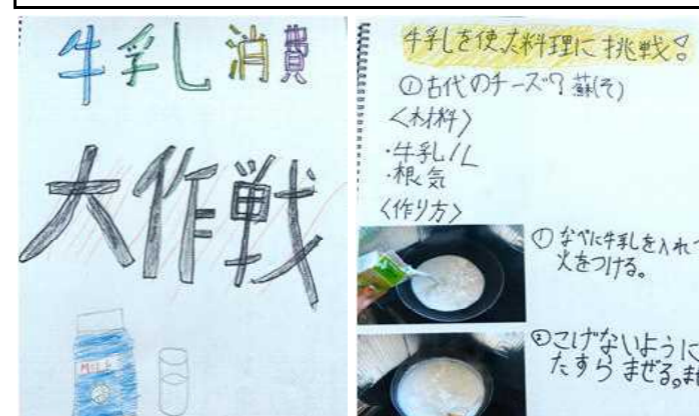 牛乳消費
大作戦
MILK
牛乳を使った料理に挑戦!
①古代のチーズ?蘇(そ)
<材料>
・牛乳1L
・根気
<作り方>
①なべに牛乳を入れ
火をつける。
②こげないように
たすらまぜる。ま